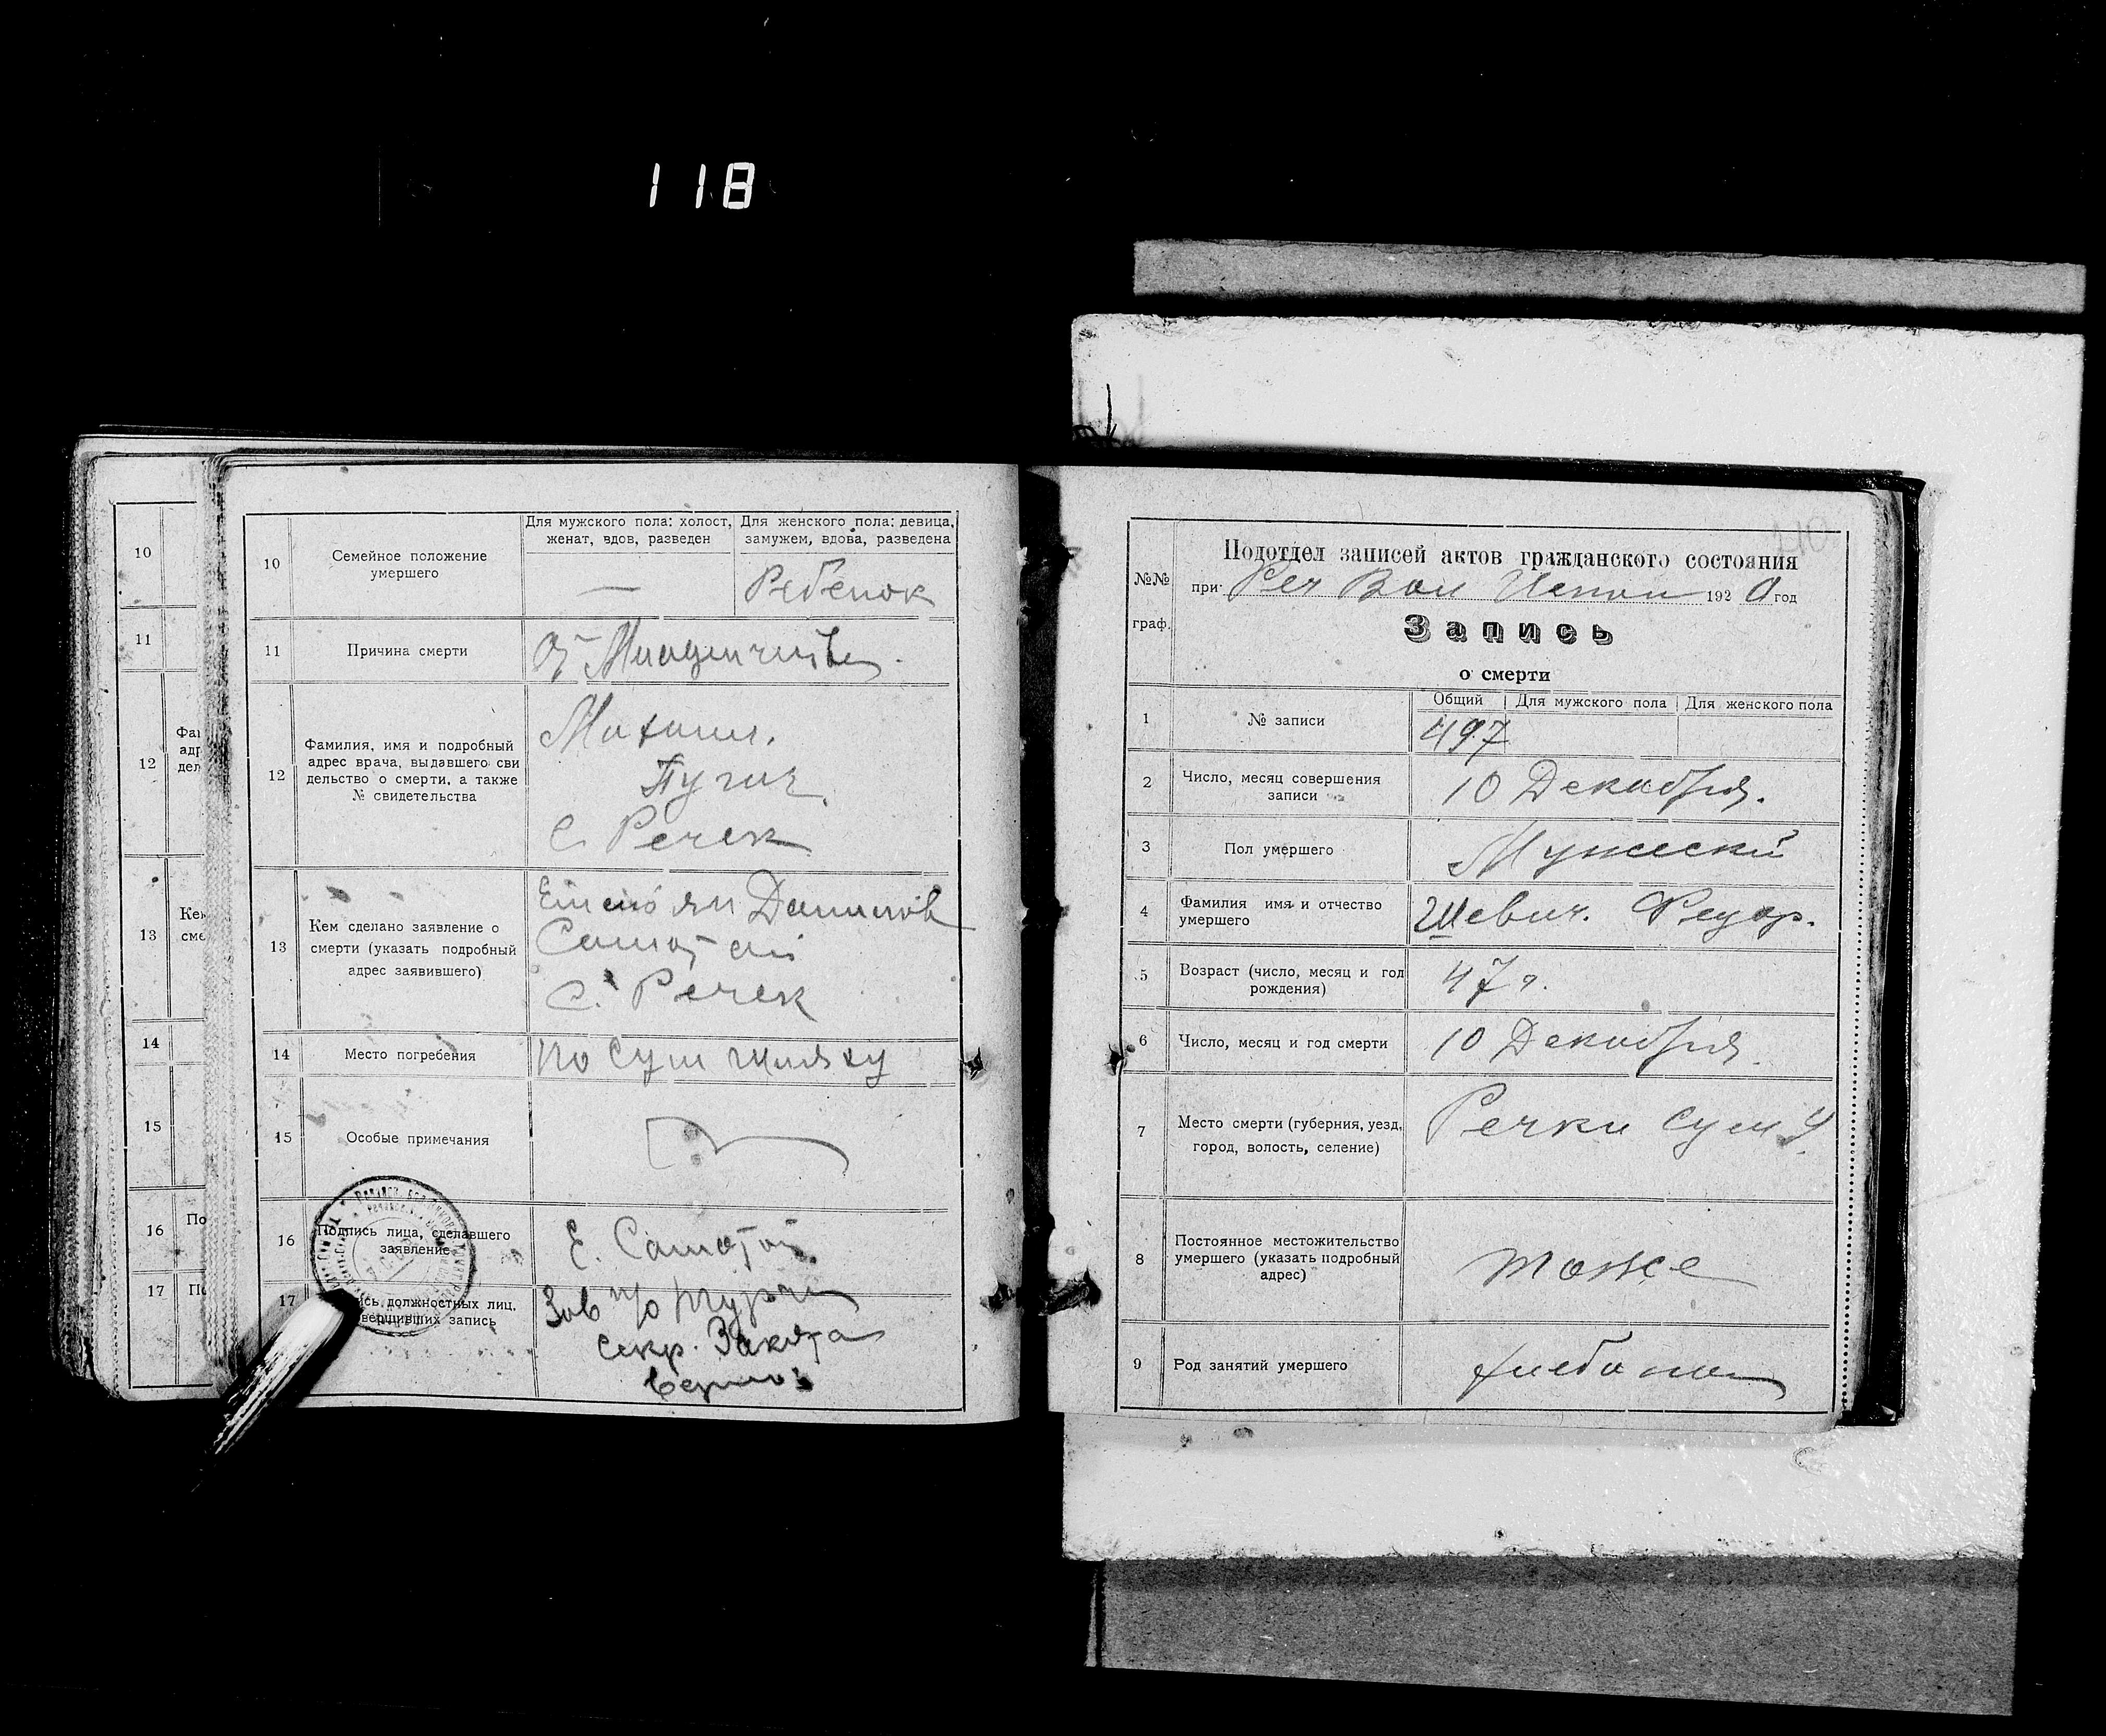 118
10
11
12
13
14
15
16
17
Фа
адр
дел
Кем
сме
По
По
10
Семейное положение
умершего
Для мужского пола: холост,
женат, вдов, разведен
Для женского пола: девица,
замужем, вдова, разведена
—
Ребенок
11
Причина смерти
От
12
Фамилия, имя и подробный
адрес врача, выдавшего сви
дельство о смерти, а также
№ свидетельства
С. Речек
13
Кем сделано заявление о
смерти (указать подробный
адрес заявившего)
Данилов
С. Речек
14
Место погребения
по Сум шляху
15
Особые примечания
16
Подпись лица, сделавшего
заявление
Е. Самотой
17
ись должностных лиц,
вершивших запись
Зав п/о
Секр.
№№
граф.
Подотдел записей актов гражданского состояния
при Реч Вол Испол 1920 год
Запись
о смерти
1
№ записи
Общий
Для мужского пола
Для женского пола
497
2
Число, месяц совершения
записи
10 Декабря.
3
Пол умершего
Мужеский
4
Фамилия имя и отчество
умершего
Шевич. Федор.
5
Возраст (число, месяц и год
рождения)
47 г.
6
Число, месяц и год смерти
10 Декабря
7
Место смерти (губерния, уезд,
город, волость, селение)
Речки Сум У
8
Постоянное местожительство
умершего (указать подробный
адрес)
тоже
9
Род занятий умершего
хлебопаш